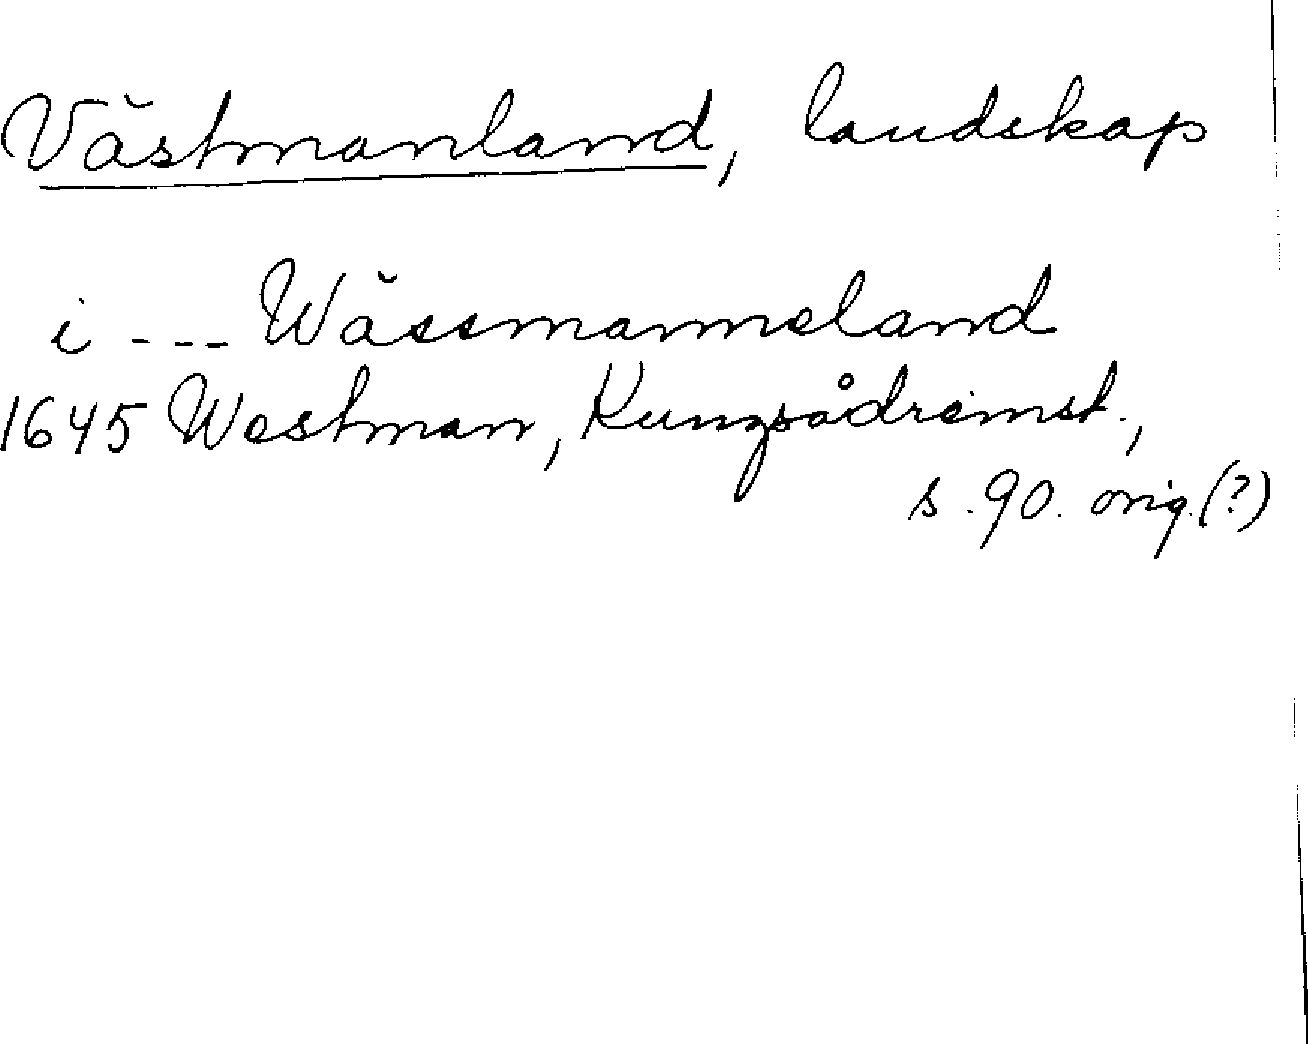 Västmanland, landskap
i --- Wässmanneland
1645 Westman, Kungsådrainst.,
s. 90. orig. (?)